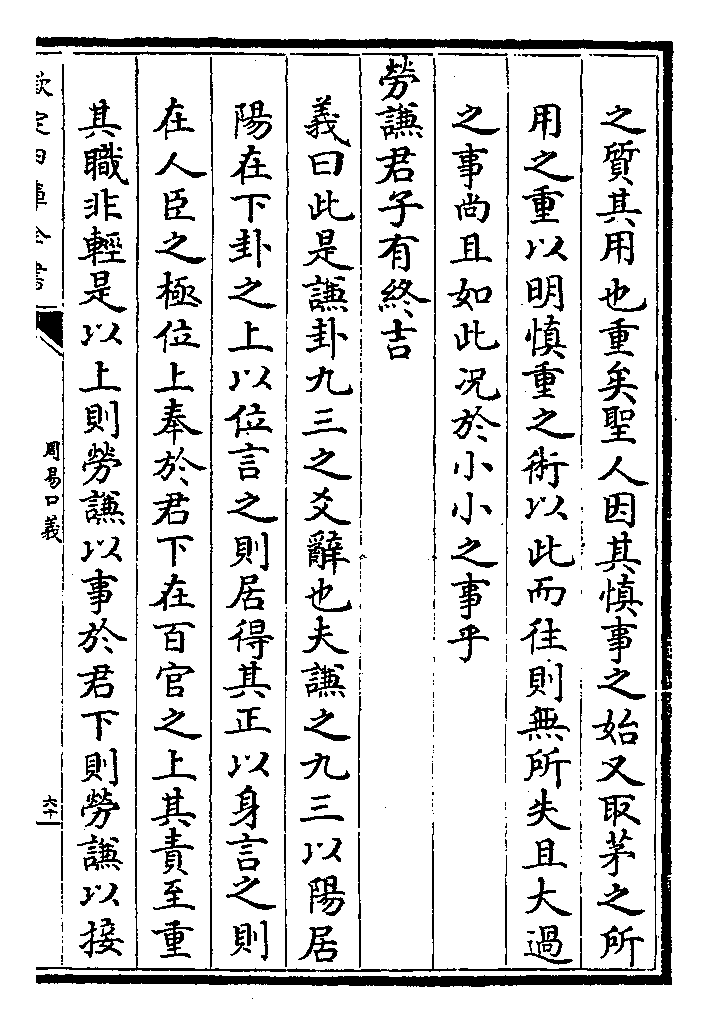 之質其用也重矣聖人因其慎事之始又取茅之所
用之重以明慎重之術以此而往則無所失且大過
之事尚且如此况於小小之事乎
勞謙君子有終吉
義曰此是謙卦九三之爻辭也夫謙之九三以陽居
陽在下卦之上以位言之則居得其正以身言之則
在人臣之極位上奉於君下在百官之上其責至重
其職非輕是以上則勞謙以事於君下則勞謙以接
欽定四庫全書
周易口義
六十